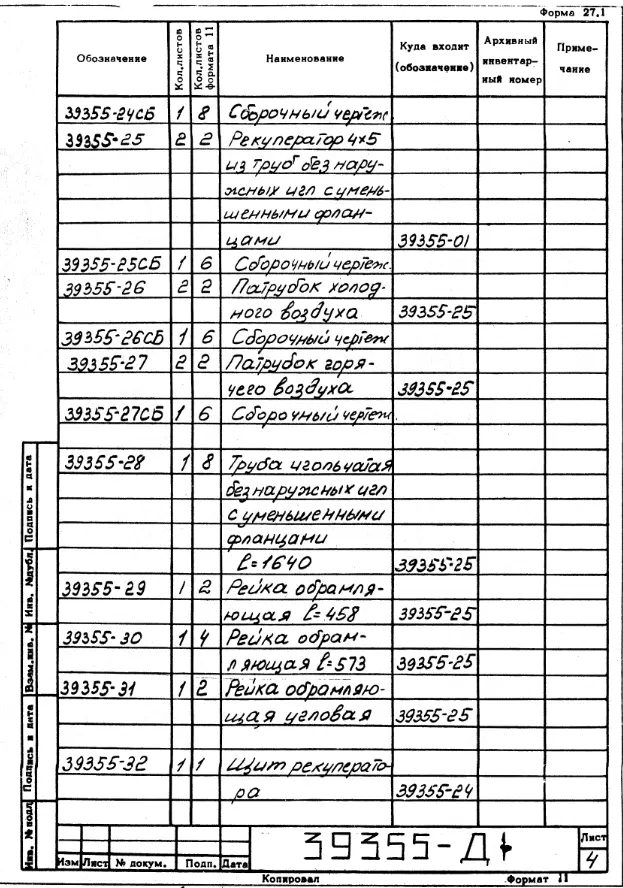 Форма 27.1
Обозначение Кол.листов Кол.листов формата 11 Наименование Куда входит (обозначение) Архивный инвентар-ный номер Приме-чание
39355-24СБ 1 8 Сборочный чертеж
39355-25 2 2 Рекуператор 4×5
из труб без нару-
жных игл с умень-
шенными флан-
цами 39355-01
39355-25СБ 1 6 Сборочный чертеж.
39355-26 2 2 Патрубок холод-
ного воздуха 39355-25
39355-26СБ 1 6 Сборочный чертеж
39355-27 2 2 Патрубок горя-
чего воздуха 39355-25
39355-27СБ 1 6 Сборочный чертеж
39355-28 1 8 Труба игольчатая
без наружных игл
с уменьшенными
фланцами
ℓ=1640 39355-25
39355-29 1 2 Рейка обрамля-
ющая ℓ=458 39355-25
39355-30 1 4 Рейка обрам-
ляющая ℓ=573 39355-25
39355-31 1 2 Рейка обрамляю-
щая угловая 39355-25
39355-32 1 1 Щит рекуперато-
ра 39355-24
Подпись и дата
Инв. №дубл.
Взам.инв. №
Подпись и дата
Инв. №подл
39355-Д
Лист
4
Изм Лист № докум. Подп. Дата
Копировал Формат 11